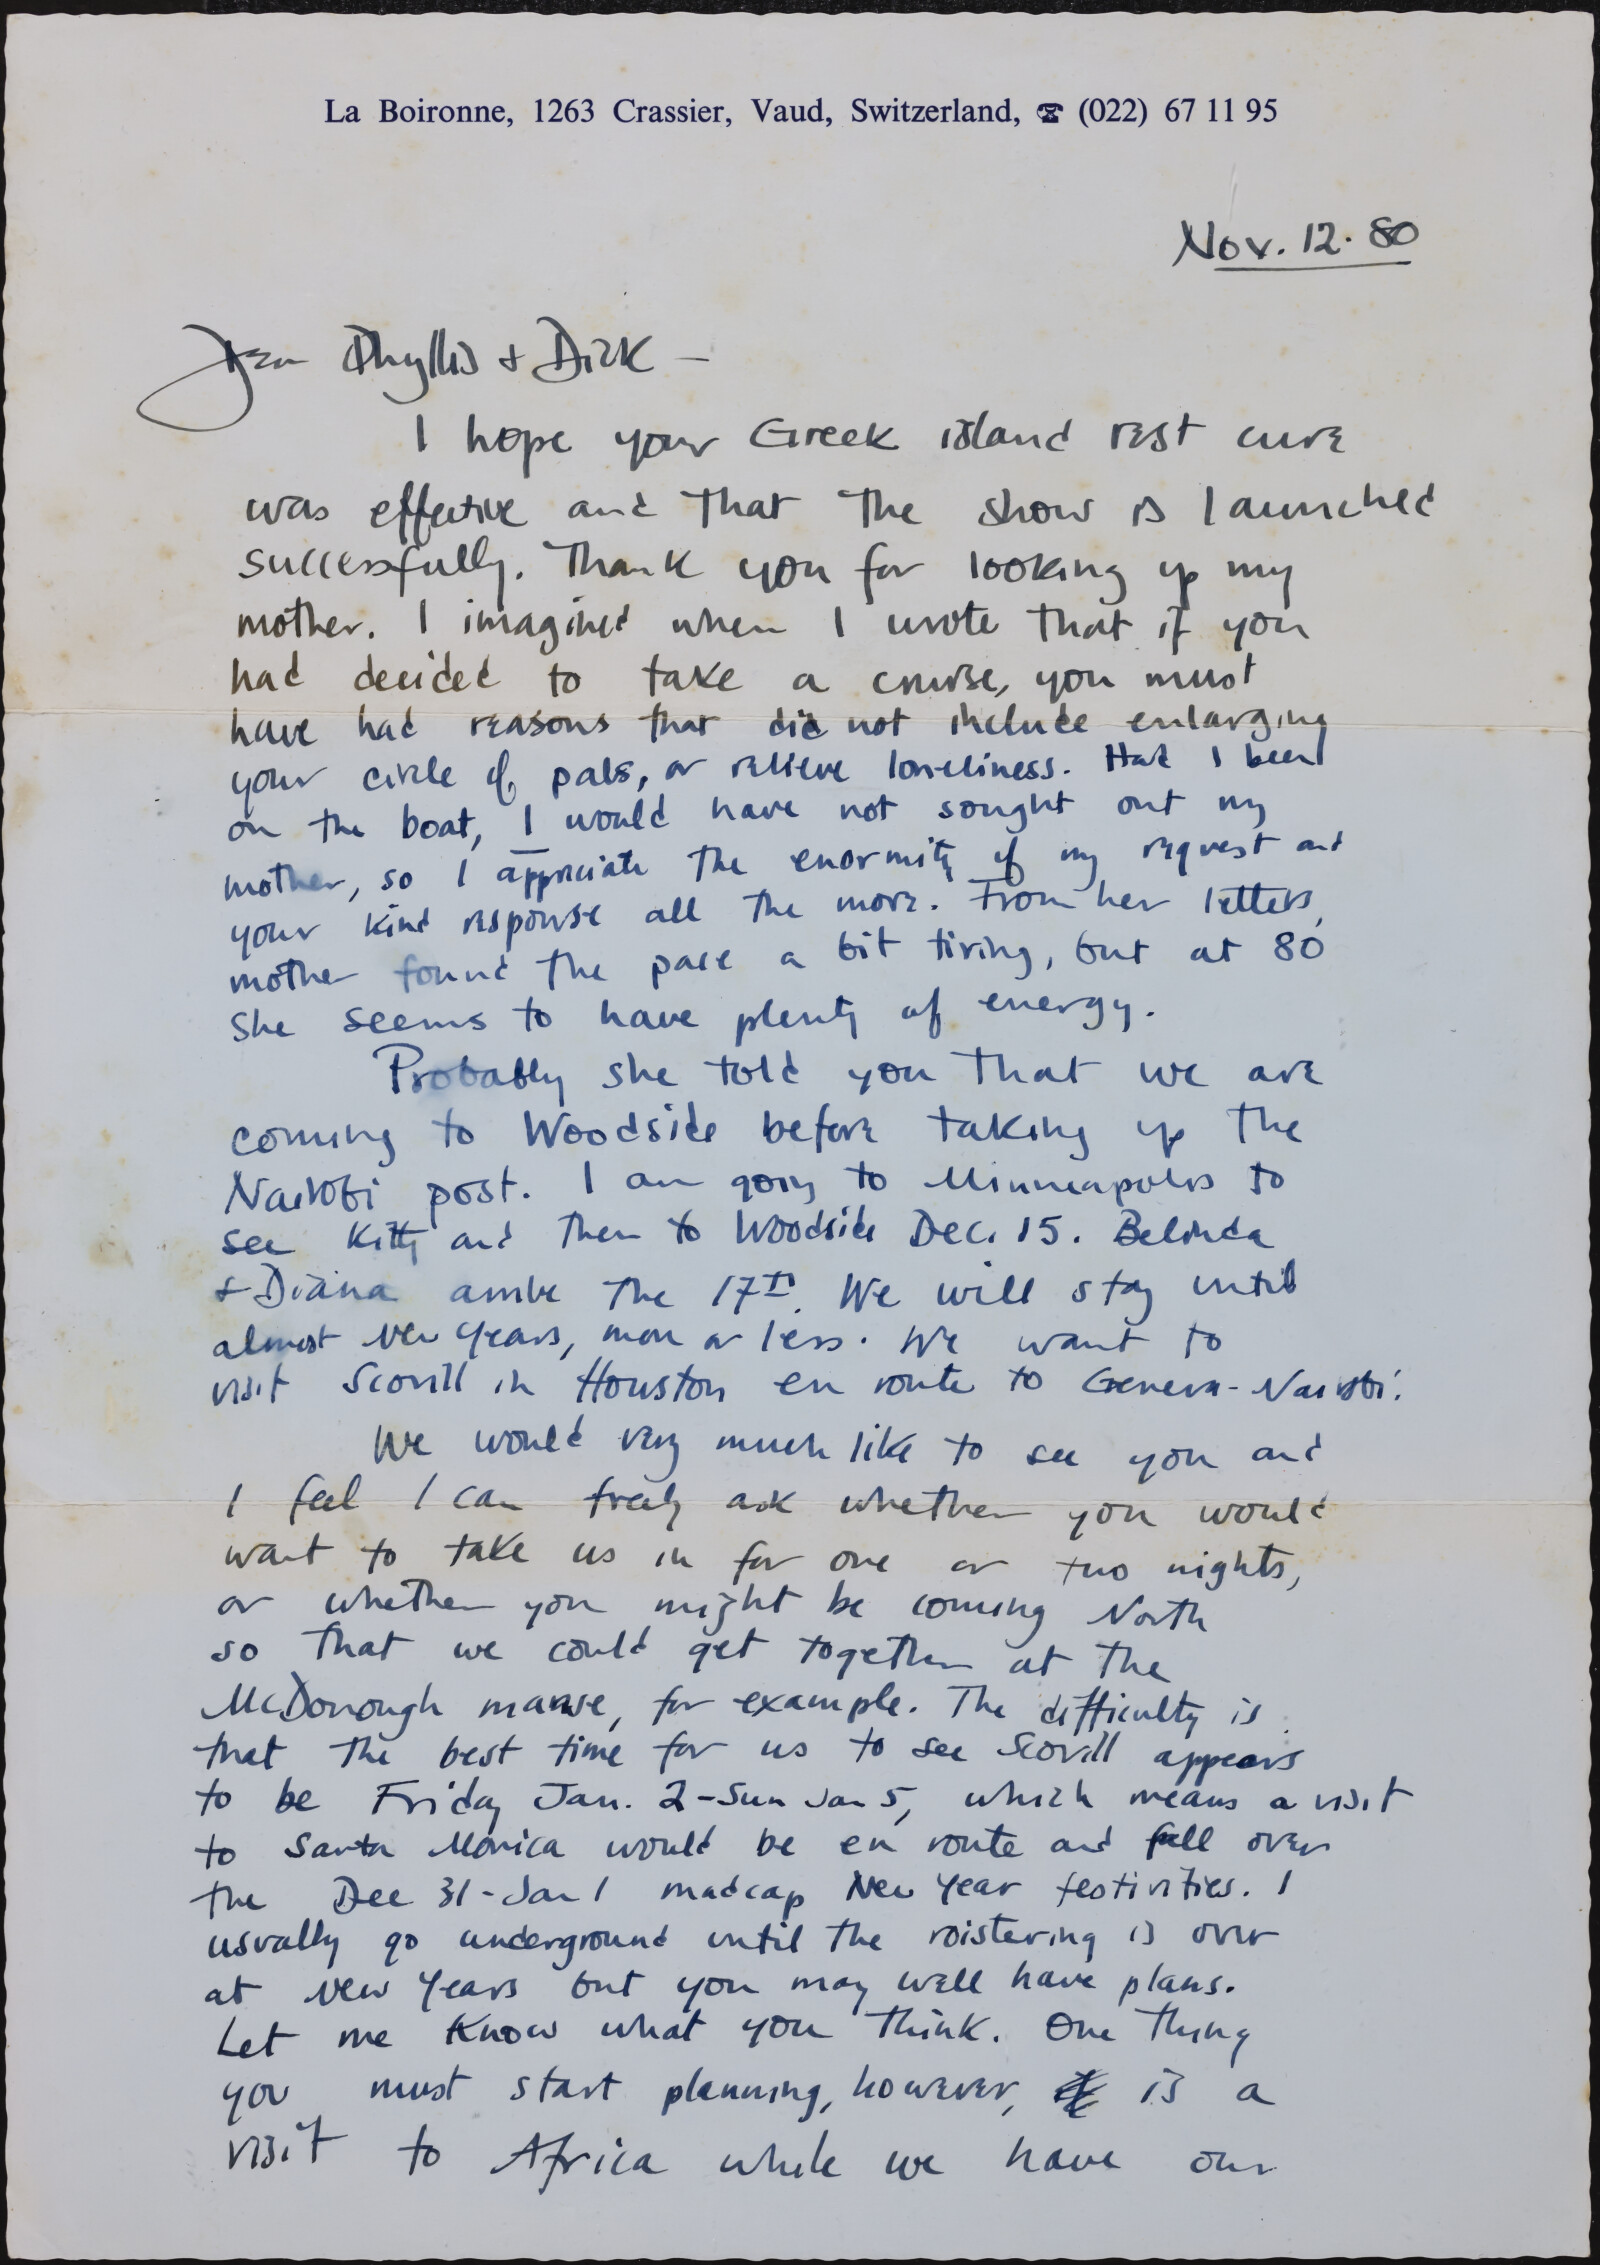 La Boironne, 1263 Crassier, Vaud, Switzerland, ☎ (022) 67 11 95
Nov. 12. 80
Dear Phyllis & Dick —
I hope your Greek island rest cure
was effective and that the show is launched
successfully. Thank you for looking up my
mother. I imagined when I wrote that if you
had decided to take a cruise, you must
have had reasons that did not include enlarging
your circle of pals, or relieve loneliness. Had I been
on the boat, I would have not sought out my
mother, so I appreciate the enormity of my request and
your kind response all the more. From her letters,
mother found the pace a bit tiring, but at 80
she seems to have plenty of energy.
Probably she told you that we are
coming to Woodside before taking up the
Nairobi post. I am going to Minneapolis to
see Kitty and then to Woodside Dec. 15. Belinda
& Diana arrive the 17th. We will stay until
almost New Years, more or less. We want to
visit Scovill in Houston en route to Geneva-Nairobi.
We would very much like to see you and
I feel I can freely ask whether you would
want to take us in for one or two nights,
or whether you might be coming North
so that we could get together at the
McDonough manse, for example. The difficulty is
that the best time for us to see Scovill appears
to be Friday Jan. 2-Sun Jan 5, which means a visit
to Santa Monica would be en route and fall over
the Dec 31-Jan 1 madcap New Year festivities. I
usually go underground until the roistering is over
at New Years but you may well have plans.
Let me know what you think. One thing
you must start planning, however, is a
visit to Africa while we have our